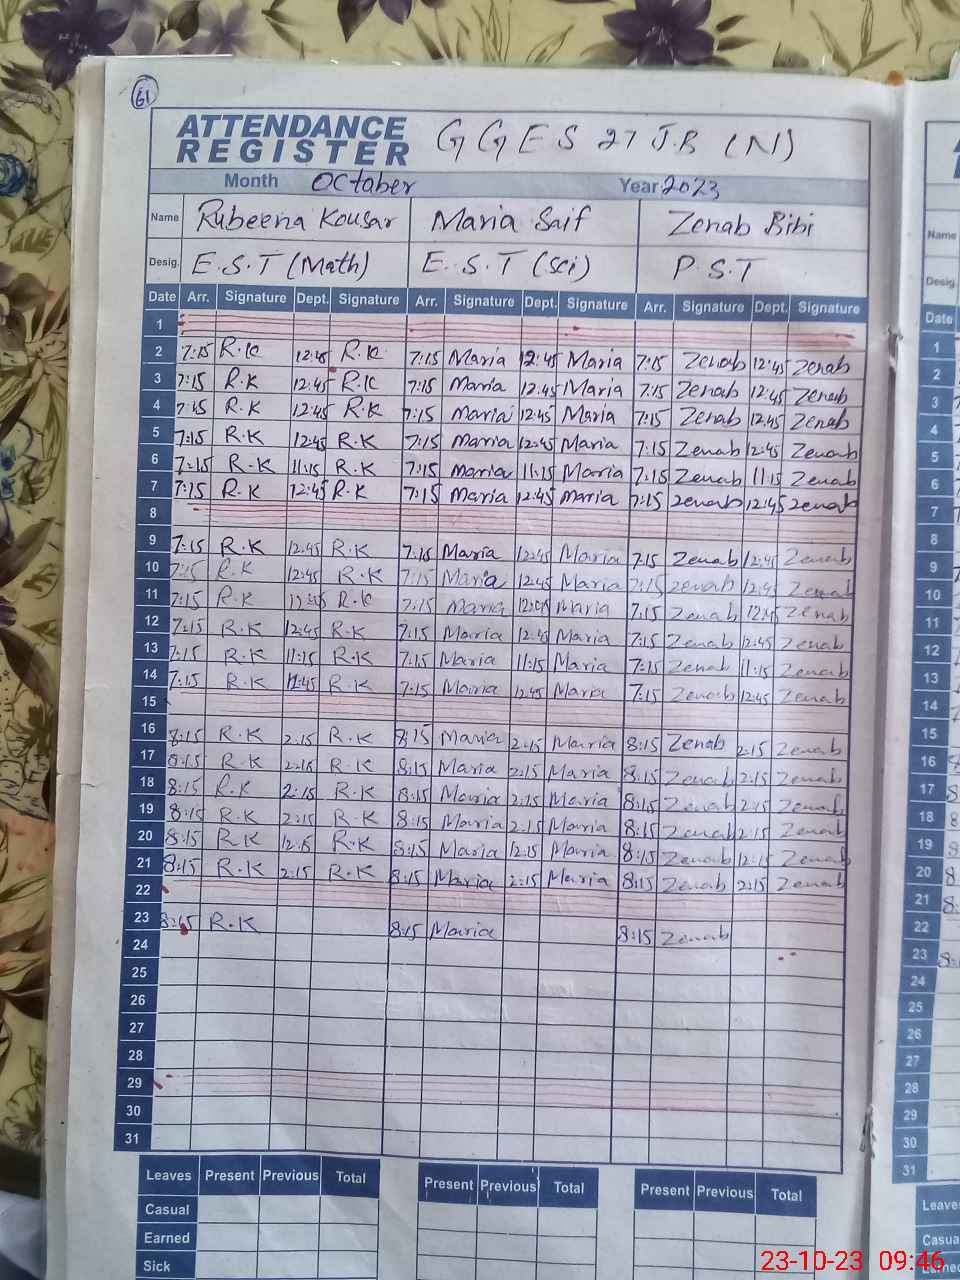 61
ATTENDANCE REGISTER GGES 27 J.B (N)
Month October Year 2023
Name Rubeena Kousar Maria Saif Zenab Bibi
Desig. E.S.T (Math) E.S.T (Sci) P.S.T
Date Arr. Signature Dept. Signature Arr. Signature Dept. Signature Arr. Signature Dept. Signature
1
2 7:15 R.K 12:45 R.K 7:15 Maria 12:45 Maria 7:15 Zenab 12:45 Zenab
3 7:15 R.K 12:45 R.K 7:15 Maria 12:45 Maria 7:15 Zenab 12:45 Zenab
4 7:15 R.K 12:45 R.K 7:15 Maria 12:45 Maria 7:15 Zenab 12:45 Zenab
5 7:15 R.K 12:45 R.K 7:15 Maria 12:45 Maria 7:15 Zenab 12:45 Zenab
6 7:15 R.K 11:15 R.K 7:15 Maria 11:15 Maria 7:15 Zenab 11:15 Zenab
7 7:15 R.K 12:45 R.K 7:15 Maria 12:45 Maria 7:15 Zenab 12:45 Zenab
8
9 7:15 R.K 12:45 R.K 7:15 Maria 12:45 Maria 7:15 Zenab 12:45 Zenab
10 7:15 R.K 12:45 R.K 7:15 Maria 12:45 Maria 7:15 Zenab 12:45 Zenab
11 7:15 R.K 12:45 R.K 7:15 Maria 12:45 Maria 7:15 Zenab 12:45 Zenab
12 7:15 R.K 12:45 R.K 7:15 Maria 12:45 Maria 7:15 Zenab 12:45 Zenab
13 7:15 R.K 11:15 R.K 7:15 Maria 11:15 Maria 7:15 Zenab 11:15 Zenab
14 7:15 R.K 12:45 R.K 7:15 Maria 12:45 Maria 7:15 Zenab 12:45 Zenab
15
16 8:15 R.K 2:15 R.K 8:15 Maria 2:15 Maria 8:15 Zenab 2:15 Zenab
17 8:15 R.K 2:15 R.K 8:15 Maria 2:15 Maria 8:15 Zenab 2:15 Zenab
18 8:15 R.K 2:15 R.K 8:15 Maria 2:15 Maria 8:15 Zenab 2:15 Zenab
19 8:15 R.K 2:15 R.K 8:15 Maria 2:15 Maria 8:15 Zenab 2:15 Zenab
20 8:15 R.K 12:15 R.K 8:15 Maria 12:15 Maria 8:15 Zenab 12:15 Zenab
21 8:15 R.K 2:15 R.K 8:15 Maria 2:15 Maria 8:15 Zenab 2:15 Zenab
22
23 8:15 R.K 8:15 Maria 8:15 Zenab
24
25
26
27
28
29
30
31
Leaves Present Previous Total Present Previous Total Present Previous Total
Casual
Earned
Sick
Name
Desig.
Date
1
2
3
4
5
6
7
8
9
10
11
12
13
14
15
16
17
18
19
20
21
22
23
24
25
26
27
28
29
30
31
Leave
Casua
Earned
23-10-23 09:46